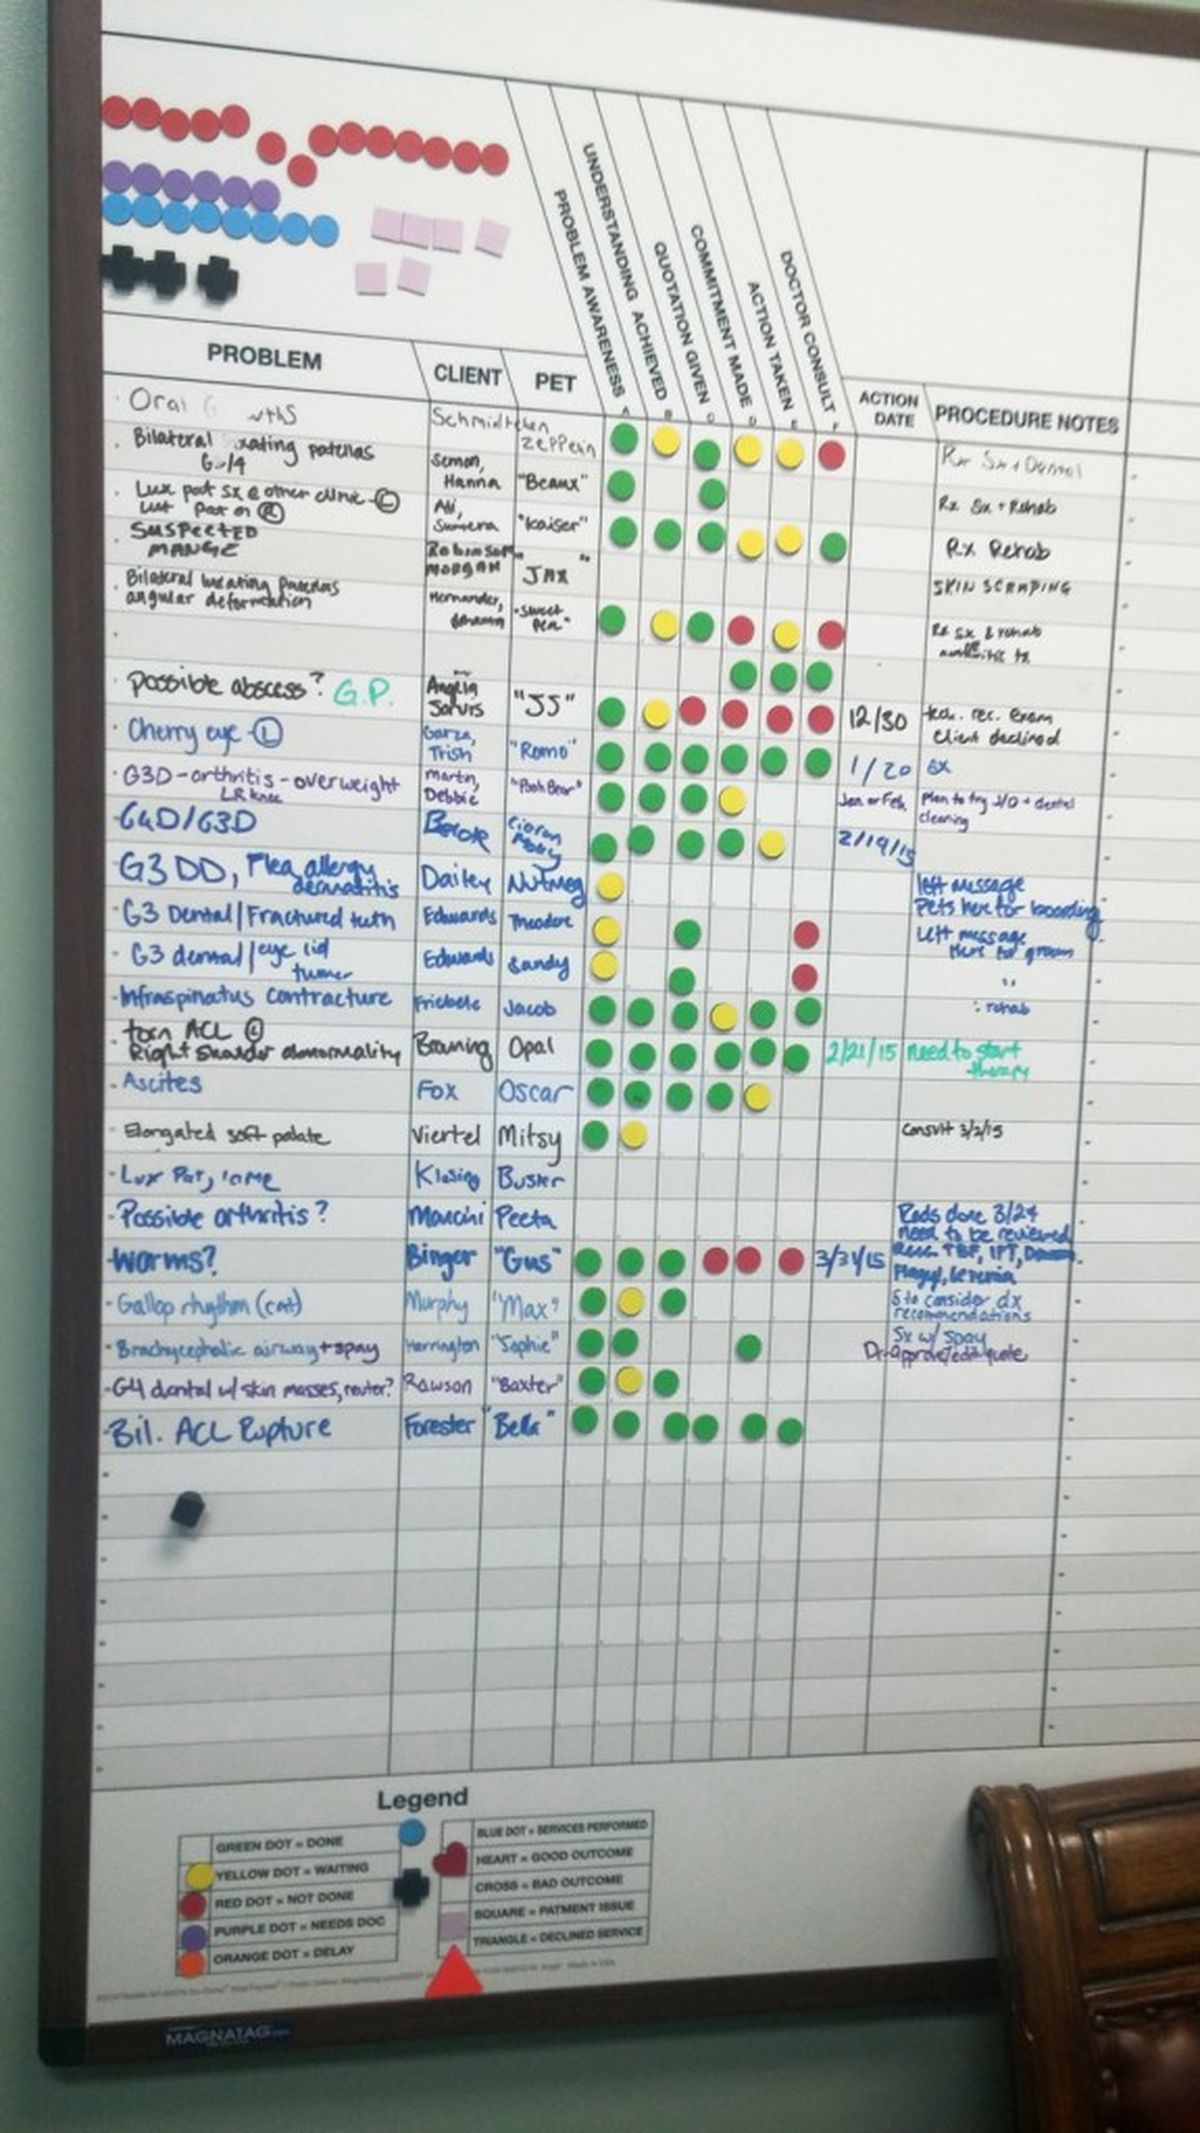 PROBLEM AWARENESS
UNDERSTANDING ACHIEVED
QUOTATION GIVEN
COMMITMENT MADE
ACTION TAKEN
DOCTOR CONSULT
PROBLEM CLIENT PET A B C D E F ACTION DATE PROCEDURE NOTES
Oral
Zeppelin Rx Sx + Dental
Bilateral patellas
Semon, Hanna "Beaux" Rx Sx + Rehab
Lux pat Sx @ other clinic L
Lux Pat on R
Ali, "Kaiser" Rx Rehab
SUSPECTED
MANGE
Robinson
MORGAN "JAX" SKIN SCRAPING
Bilateral luxating patellas
angular deformation
Hernandez, "Sweet Pea" Rx Sx & rehab
or
tx
possible abscess? G.P. Angelia Jarvis "JJ" 12/30 tech. rec. exam
Client declined
Cherry eye - L Garza, Trish "Romo" 1/20 Sx
G3D - arthritis - overweight
LR knee
Martin, Debbie "Pooh Bear" Jan or Feb. Plan to try I/O + dental
cleaning
G4D/G3D Molly 2/19/15
G3 DD, Flea allergy
dermatitis
Dailey Nutmeg left message
Pets here for boarding
G3 Dental/Fractured tooth Edwards Theodore Left message
Here to groom
G3 dental/eye lid
tumor
Edwards Sandy "
Infraspinatus contracture Jacob : rehab
torn ACL L
Right shoulder abnormality Browning Opal 2/21/15 Need to start
therapy
Ascites Fox Oscar
Elongated soft palate Viertel Mitsy Consult 3/2/15
Lux Pat, lame Klasing Buster
Possible arthritis? Mancini Peeta Rads done 3/24
need to be reviewed
Worms? Binger "Gus" 3/31/15 TBF, IPT,
Flagyl,
Gallop rhythm (cat) Murphy "Max" to consider dx
recommendations
Brachycephalic airway + spay Harrington "Sophie" Sx w/ spay
Dr. quote
G4 dental w/ skin masses, neuter? Rawson "Baxter"
Bil. ACL Rupture Forester "Bella"
Legend
GREEN DOT = DONE
YELLOW DOT = WAITING
RED DOT = NOT DONE
PURPLE DOT = NEEDS DOC
ORANGE DOT = DELAY
BLUE DOT = SERVICES PERFORMED
HEART = GOOD OUTCOME
CROSS = BAD OUTCOME
SQUARE = PATMENT ISSUE
TRIANGLE = DECLINED SERVICE
MAGNATAG